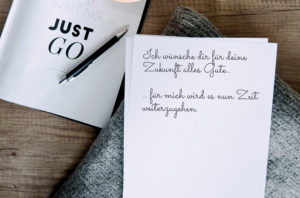 WAITING
JUST
GO
Ich wünsche dir für deine
Zukunft alles Gute...
...für mich wird es nun Zeit
weiterzugehen.